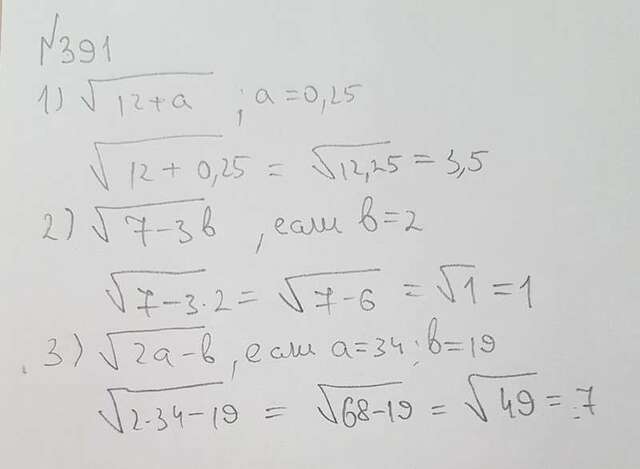 №391
1) √12+a ; a=0,25
√12+0,25 = √12,25 = 3,5
2) √7-3b , если b=2
√7-3·2 = √7-6 = √1 = 1
3) √2a-b , если a=34; b=19
√2·34-19 = √68-19 = √49 = 7